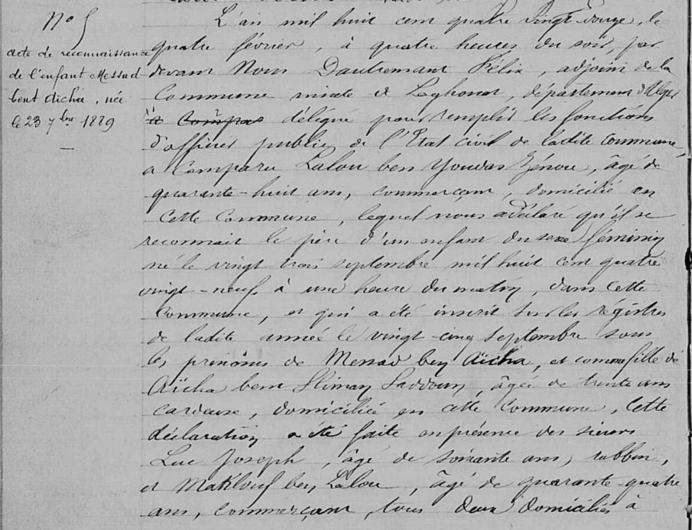 N° 5
acte de reconnaissance
de l'enfant Messad
bent Aïcha, née
le 23 7bre 1889
L'an mil huit cent quatre vingt douze, le
quatre février, à quatre heures du soir, par
devant Nous Dautremant Félix, adjoint de la
Commune mixte de Laghouat, département d'Alger
délégué pour remplir les fonctions
d'officier public de l'Etat civil de ladite commune
a comparu Lalou ben Youdas Zénou, âgé de
quarante-huit ans, commerçant, domicilié en
cette Commune, lequel nous a déclaré qu'il se
reconnait le père d'un enfant du sexe féminin
né le vingt trois septembre mil huit cent quatre
vingt-neuf à une heure du matin, dans cette
Commune, et qui a été inscrit sur les régistres
de ladite année le vingt-cinq septembre sous
les prénoms de Messad ben Aïcha, et comme fille de
Aïcha bent Sliman Saddoun, âgée de trente ans
cardeuse, domiciliée en cette Commune, Cette
déclaration a été faite en présence des sieurs
Luc Joseph, âgé de soixante ans, rabbin,
et Makhlouf ben Lalou, âgé de quarante-quatre
ans, commerçant, tous deux domiciliés à